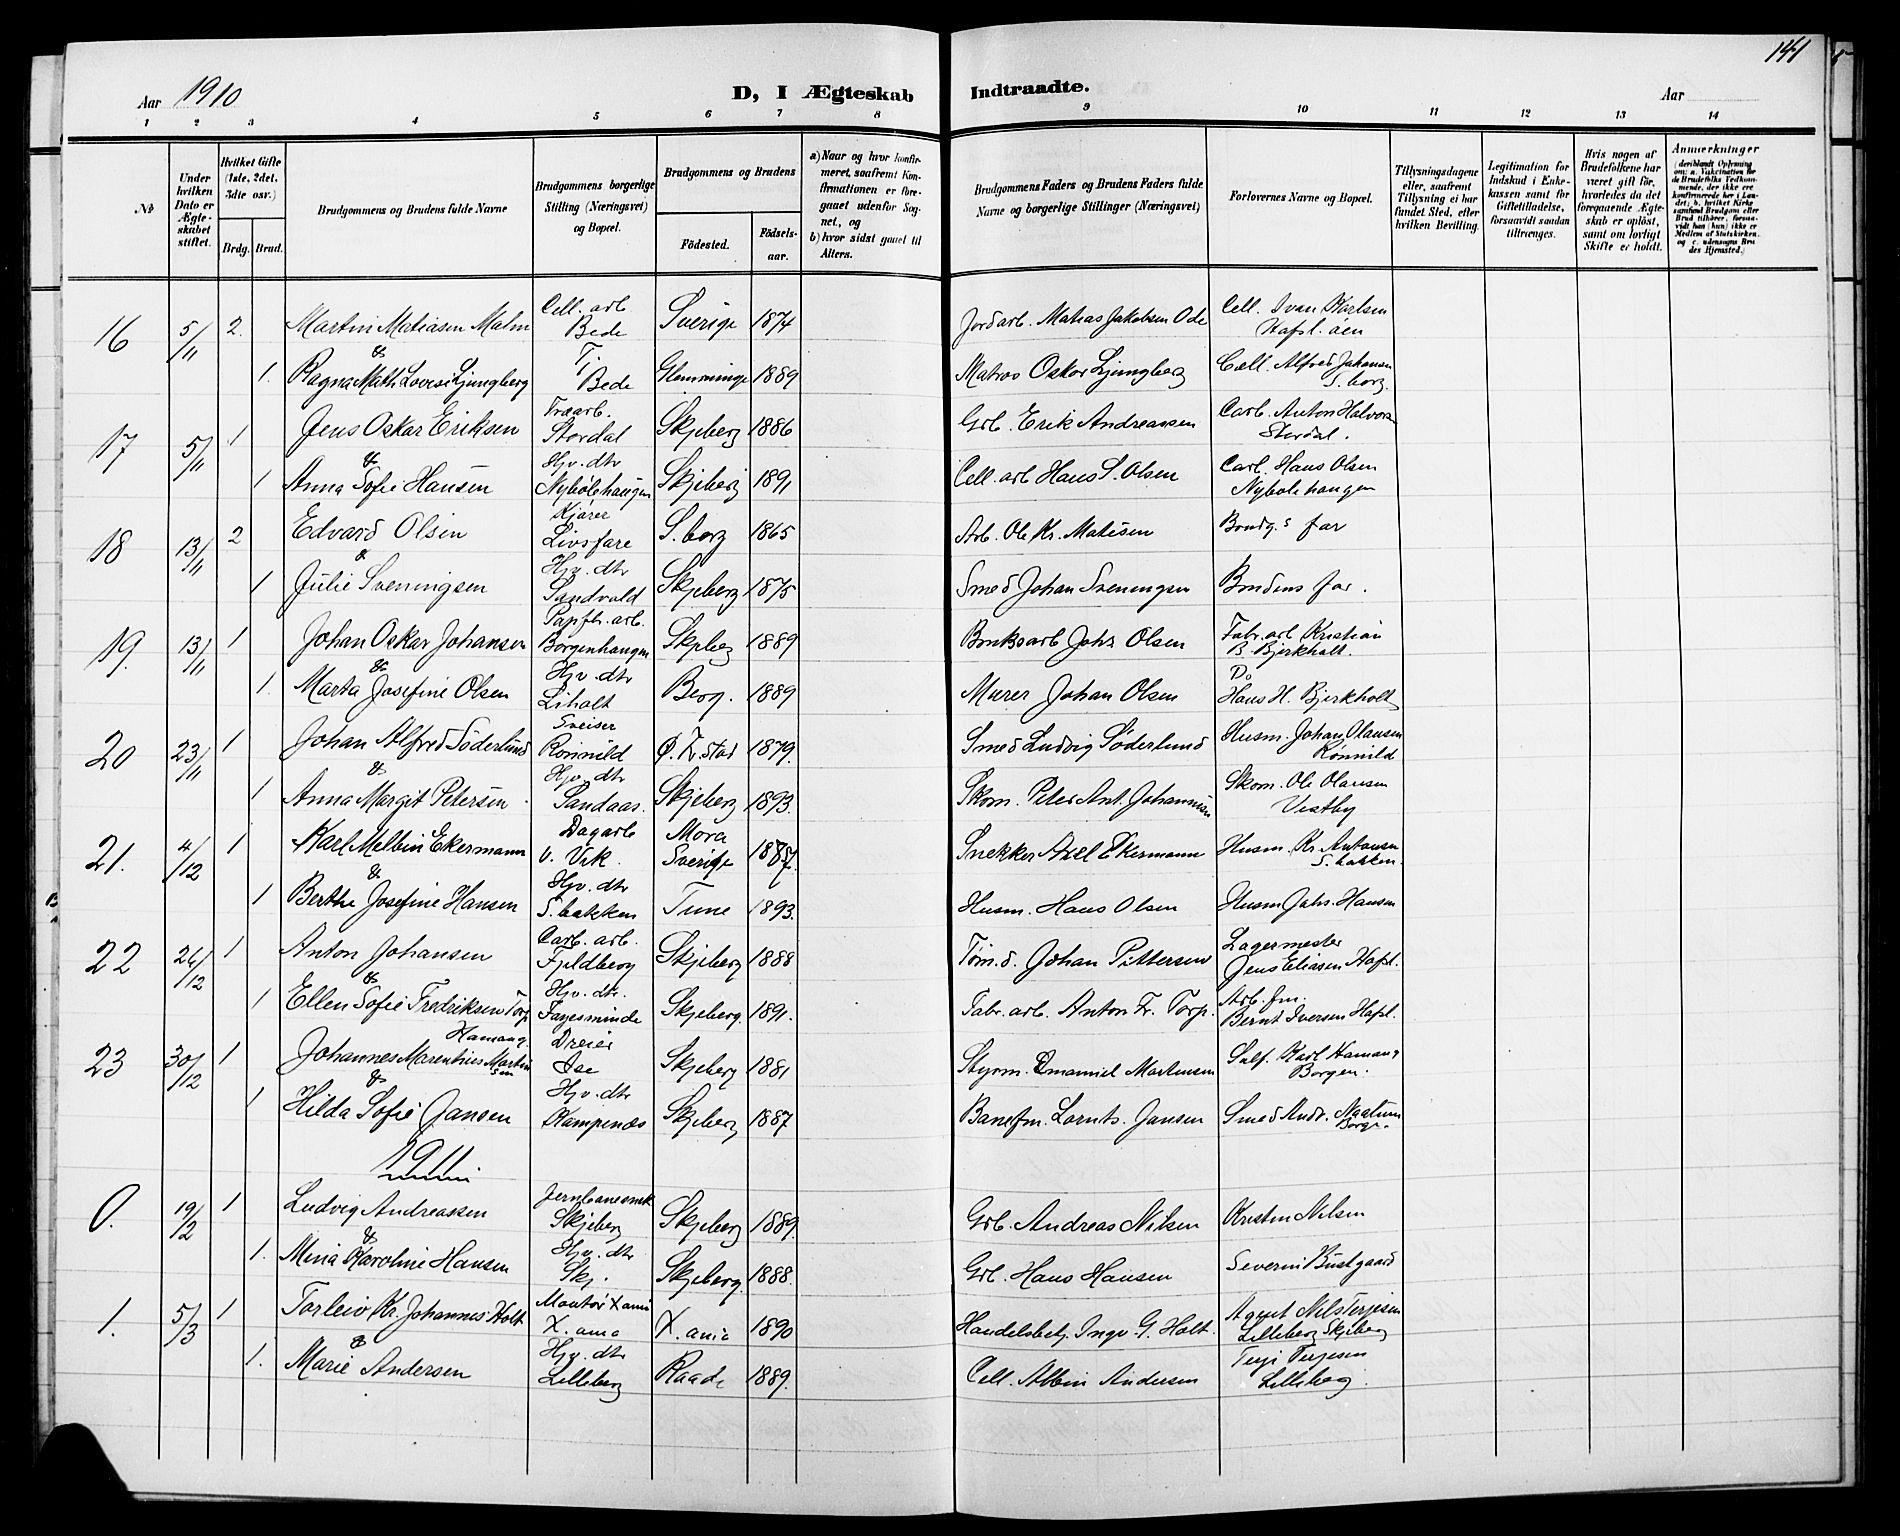 141
Aar 1910
D, I Ægteskab Indtraadte.
Aar
1 2 3 4 5 6 7 8 9 10 11 12 13 14
№
Under hvilken Dato er Ægteskabet stiftet.
Hvilket Gifte (1ste, 2det, 3die osv.)
Brdg. Brud.
Brudgommens og Brudens fulde Navne
Brudgommens borgerlige Stilling (Næringsvei) og Bopæl.
Brudgommens og Brudens
Födested.
Födsels-aar.
a) Naar og hvor konfirmeret, saafremt Konfirmationen er foregaaet udenfor Sognet, og
b) hvor sidst gaaet til Alters.
Brudgommens Faders og Brudens Faders fulde Navne og borgerlige Stillinger (Næringsvei)
Forlovernes Navne og Bopæl.
Tillysningsdagene eller, saafremt Tillysning ei har fundet Sted, efter hvilken Bevilling.
Legitimation for Indskud i Enkekassen samt for Giftetilladelse, forsaavidt saadan tiltrænges.
Hvis nogen af Brudefolkene har været gift för, hvorledes da det foregaaende Ægteskab er oplöst, samt om lovligt Skifte er holdt.
Anmærkninger
16 5/11 2. Martin Matiasen Malm Cell. arb Bede Sverige 1874 Jordarb. Matias Jakobsen Ode Cell. Ivan Karlsen Hafsl. aen
&
1. Ragna Math. Lovise Ljungberg T. Bede Glemminge 1889 Matros Oskar Ljungberg Cell. Alfred Johansen S. borg.
17 5/11 1 Jens Oskar Eriksen Traarb. Stordal Skjeberg 1886 Grb. Erik Andreassen Carb. Anton Halvors Stordal.
&
1 Anna Sofie Hansen Hjv. dtr Nybølehaugen Skjeberg 1891 Cell. arb Hans S. Olsen Carl. Hans Olsen Nybølehaugen
18 13/11 2 Edvard Olsen Kjører Livsfare S. borg 1865 Arb. Ole Kr. Matisen Brudg.s far
&
1 Julie Sveningsen Hjv. dtr Sandvold Skjeberg 1875 Smed Johan Sveningsen Brudens far.
19. 13/11 1 Johan Oskar Johansen Papfb. arb. Borgenhaugen Skjeberg 1889 Bruksarb Johs Olsen Fabr. arb Kristian B. Bjerkholt.
&
1. Marta Josefine Olsen Hjv. dtr Liholt Berg. 1889 Murer Johan Olsen Do Hans H. Bjerkholt
20 23/11 1 Johan Alfred Söderlund Sveiser Rönnild Ø. F. stad 1879. Smed Ludvig Söderlund Husm. Johan Olausen Rønnild
&
1 Anna Margit Petersen Hjv. dtr Sandaas. Skjeberg 1893. Skom. Peter Ant. Johannesen Skom. Ole Olausen Vestby
21. 4/12 1 Karl Melbin Ekermann Dagarb v. Vik. Mora Sverige Snekker Axel Ekermann Husm. Kr. Antonsen S. bakken.
&
1 Berthe Josefine Hansen Hjv. dtr S. bakken Tune 1893. Husm. Hans Olsen Husm Johs. Hansen
22 26/12 1 Anton Johansen Carb. arb. Fjeldberg Skjeberg 1888 Tøm.d. Johan Pettersen Lagermester Jens Eliasen Hafsl.
&
1 Ellen Sofie Fredriksen Torp Hjv. dtr. Fagesminde Skjeberg. 1891. Fabr. arb. Anton Fr. Torp. Arb. fm. Bernt Iversen Hafsl.
Hamang.
23 30/12 1 Johannes Marentius Martinsen Dreier Ise Skjeberg 1881 Styrm. Emanuel Martinsen Self. Karl Hamang Borgen.
&
1 Hilda Sofie Jansen Hjv. dtr Kampenæs Skjeberg 1887 Banefm. Lornts. Jansen Smed Andr. Naatum Borge.
1911
0. 19/2 1 Ludvig Andreassen Skjeberg Skjeberg 1889. Grb. Andreas Nilsen Kristen Nilsen
&
1. Mina Karoline Hansen Hjv. dtr Skj. Skjeberg. 1888. Grb. Hans Hansen Severin Bustgaard
1. 5/3 1 Torleiv Kr. Johannes Holt Montør X ania X. ania X. ania 1890 Handelsbetj. Ingv. G. Holt. Agent Nils Terjesen Lilleberg Skjeberg
&
1. Marie Andersen Hjv. dtr Lilleberg Raade 1889. Cell. Albin Andersen Terje Terjesen Lilleberg.